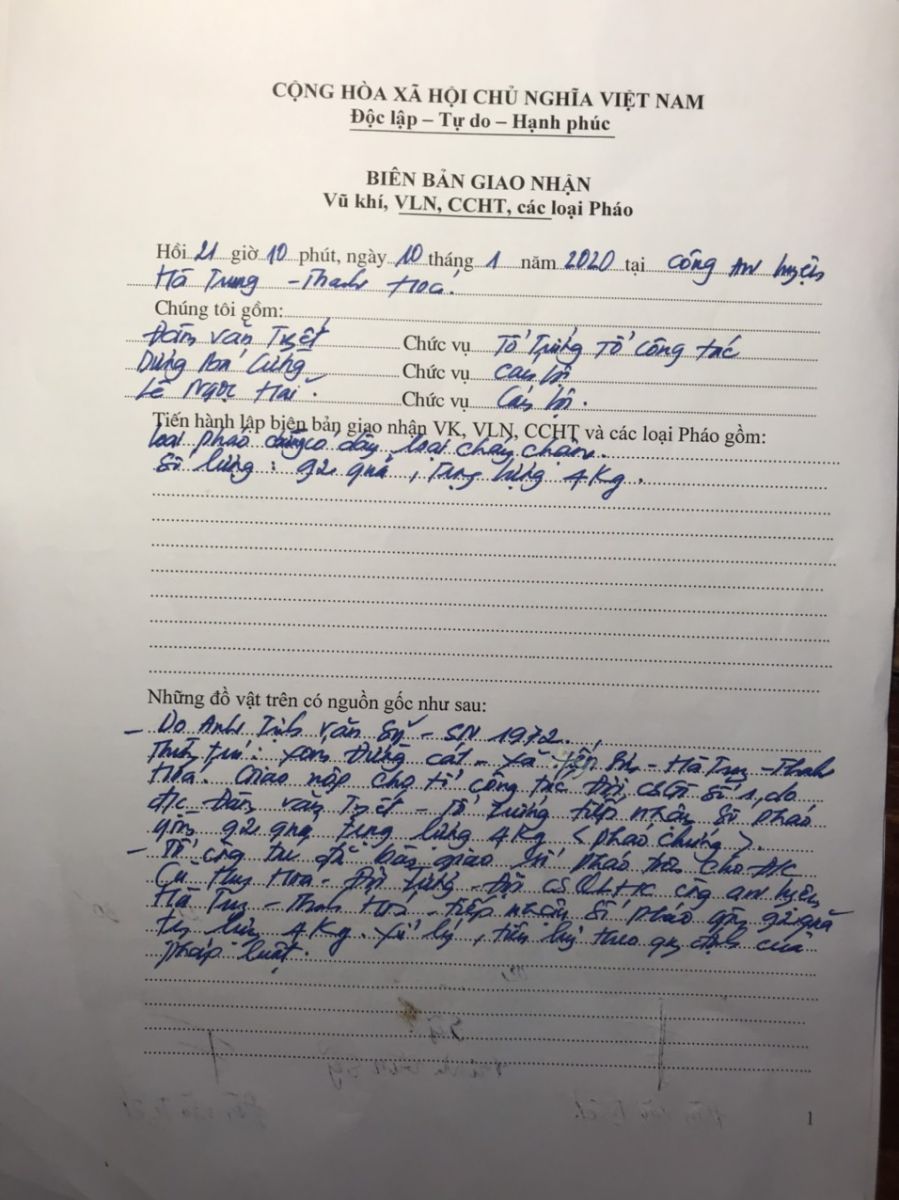 CỘNG HÒA XÃ HỘI CHỦ NGHĨA VIỆT NAM
Độc lập – Tự do – Hạnh phúc
BIÊN BẢN GIAO NHẬN
Vũ khí, VLN, CCHT, các loại Pháo
Hồi 21 giờ 10 phút, ngày 10 tháng 1 năm 2020 tại Công An huyện
Hà Trung - Thanh Hoá.
Chúng tôi gồm:
Đàm Văn Tuyết Chức vụ Tổ Trưởng Tổ công tác
Chức vụ Cán bộ
Lê Ngọc Hải. Chức vụ Cán bộ.
Tiến hành lập biên bản giao nhận VK, VLN, CCHT và các loại Pháo gồm:
loại pháo dây, loại cháy chậm.
Số lượng: 92 quả, Trọng lượng 4 Kg.
Những đồ vật trên có nguồn gốc như sau:
- Do Anh Trịnh Văn Sỹ - SN 1972.
Thường trú: xóm cát - xã - Hà Trung - Thanh
Hoá. Giao nộp cho tổ công tác Đội CSGT Số 1, do
đ/c Đàm Văn Tuyết - Tổ trưởng tiếp nhận số pháo
gồm 92 quả Trọng lượng 4 Kg < pháo chứng >.
- Tổ công tác đã bàn giao số pháo trên cho Đ/c
Huy Hoà - Đội trưởng - Đội CSQLHC công an huyện
Hà Trung - Thanh Hoá - tiếp nhận số pháo gồm 92 quả
trọng lượng 4 Kg. Xử lý, tiêu huỷ theo quy định của
pháp luật.
1